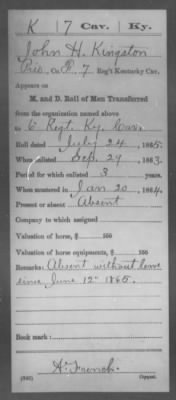 K | 7 Cav. | Ky.
John H. Kingston
Co. F. 7 Reg't Kentucky Cav.
Appears on
M. and D. Roll of Men Transferred
from the organization named above
to 6 Regt. Ky. Cav.
Roll dated July 24, 1865.
When enlisted Sep. 29, 1863.
Period for which enlisted 3 years.
When mustered in Jan 20, 1864.
Present or absent Absent
Company to which assigned
Valuation of horse, $ 100
Valuation of horse equipments, $ 100
Remarks: Absent without leave
since June 12" 1865.
Book mark:
French.
Copyist.